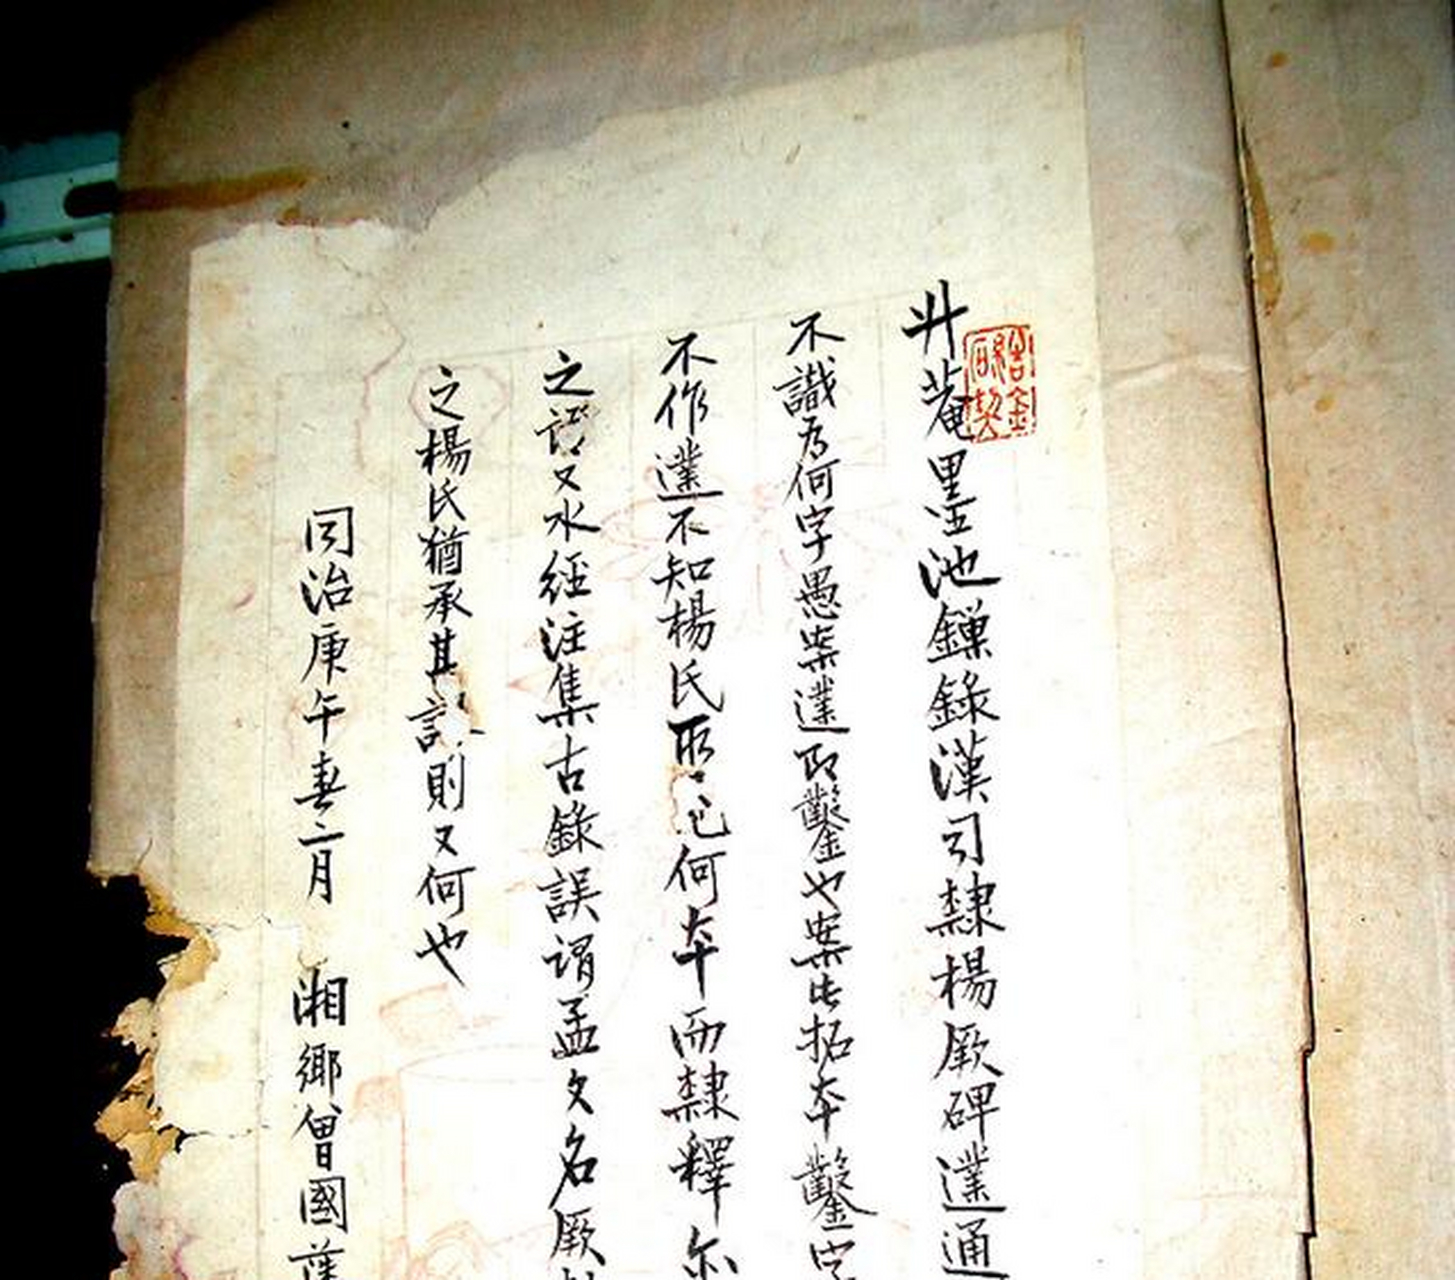 升菴墨池鏁錄漢司隸楊厥碑𨗉通
不識為何字愚案𨗉即鑿也案此拓本鑿字
不作𨗉不知楊氏所已何本而隸釋尔
之又水經注集古錄誤謂孟文名厥
之楊氏猶承其則又何也
同治庚午春二月 湘鄉曾國藩